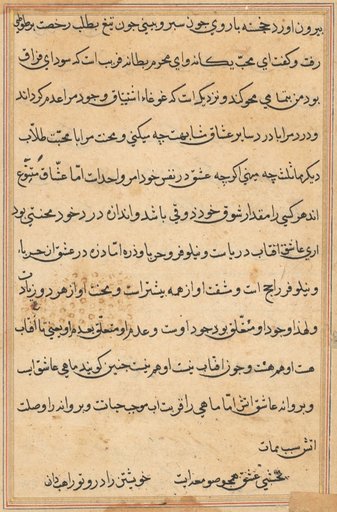 بیرون اورد خجسته با روی جون سپر و بینی جون تیغ بطلب رخصت بر طوطی
رفت و کفت ای محب یکانه و ای محرم بطانه قریب است که سودای فراق
بود من بتمامی محو کند و نزدیک است که غوغاء اشتیاق وجود مرا عدم کرداند
و درد مرا با درد سایر عشاق مشابهت چه میکنی و محنت مرا با محبت طلاب
دیکر مماثلت چه مینهی اکرچه عشق در نفس خود امر واحد است اما عشاق متنوع
اند هر کسی را مقدار شوق خود ذوقی باشد و اندازه درد خود محنتی بود
اری عاشق افتاب دریاست و نیلوفر و حربا و ذره اما ذره در عشق از حرباء
و نیلوفر راجح است و شفت او از همه بیشتر است و محنت او از هر دو زیادت
و لهذا وجود او متعلق بوجود اوست و عدم او متعلق بعدم او یعنی تا افتاب
هست او هم هست و جون افتاب نیست او هم نیست جنین کویند ماهی عاشق ابست
و پروانه عاشق اتش اما ماهی را قربت اب موجب حیات و پروانه را وصلت
اتش سبب ممات
نخشبی عشق همجو معدنست خویشتن را در و تو راهب دان